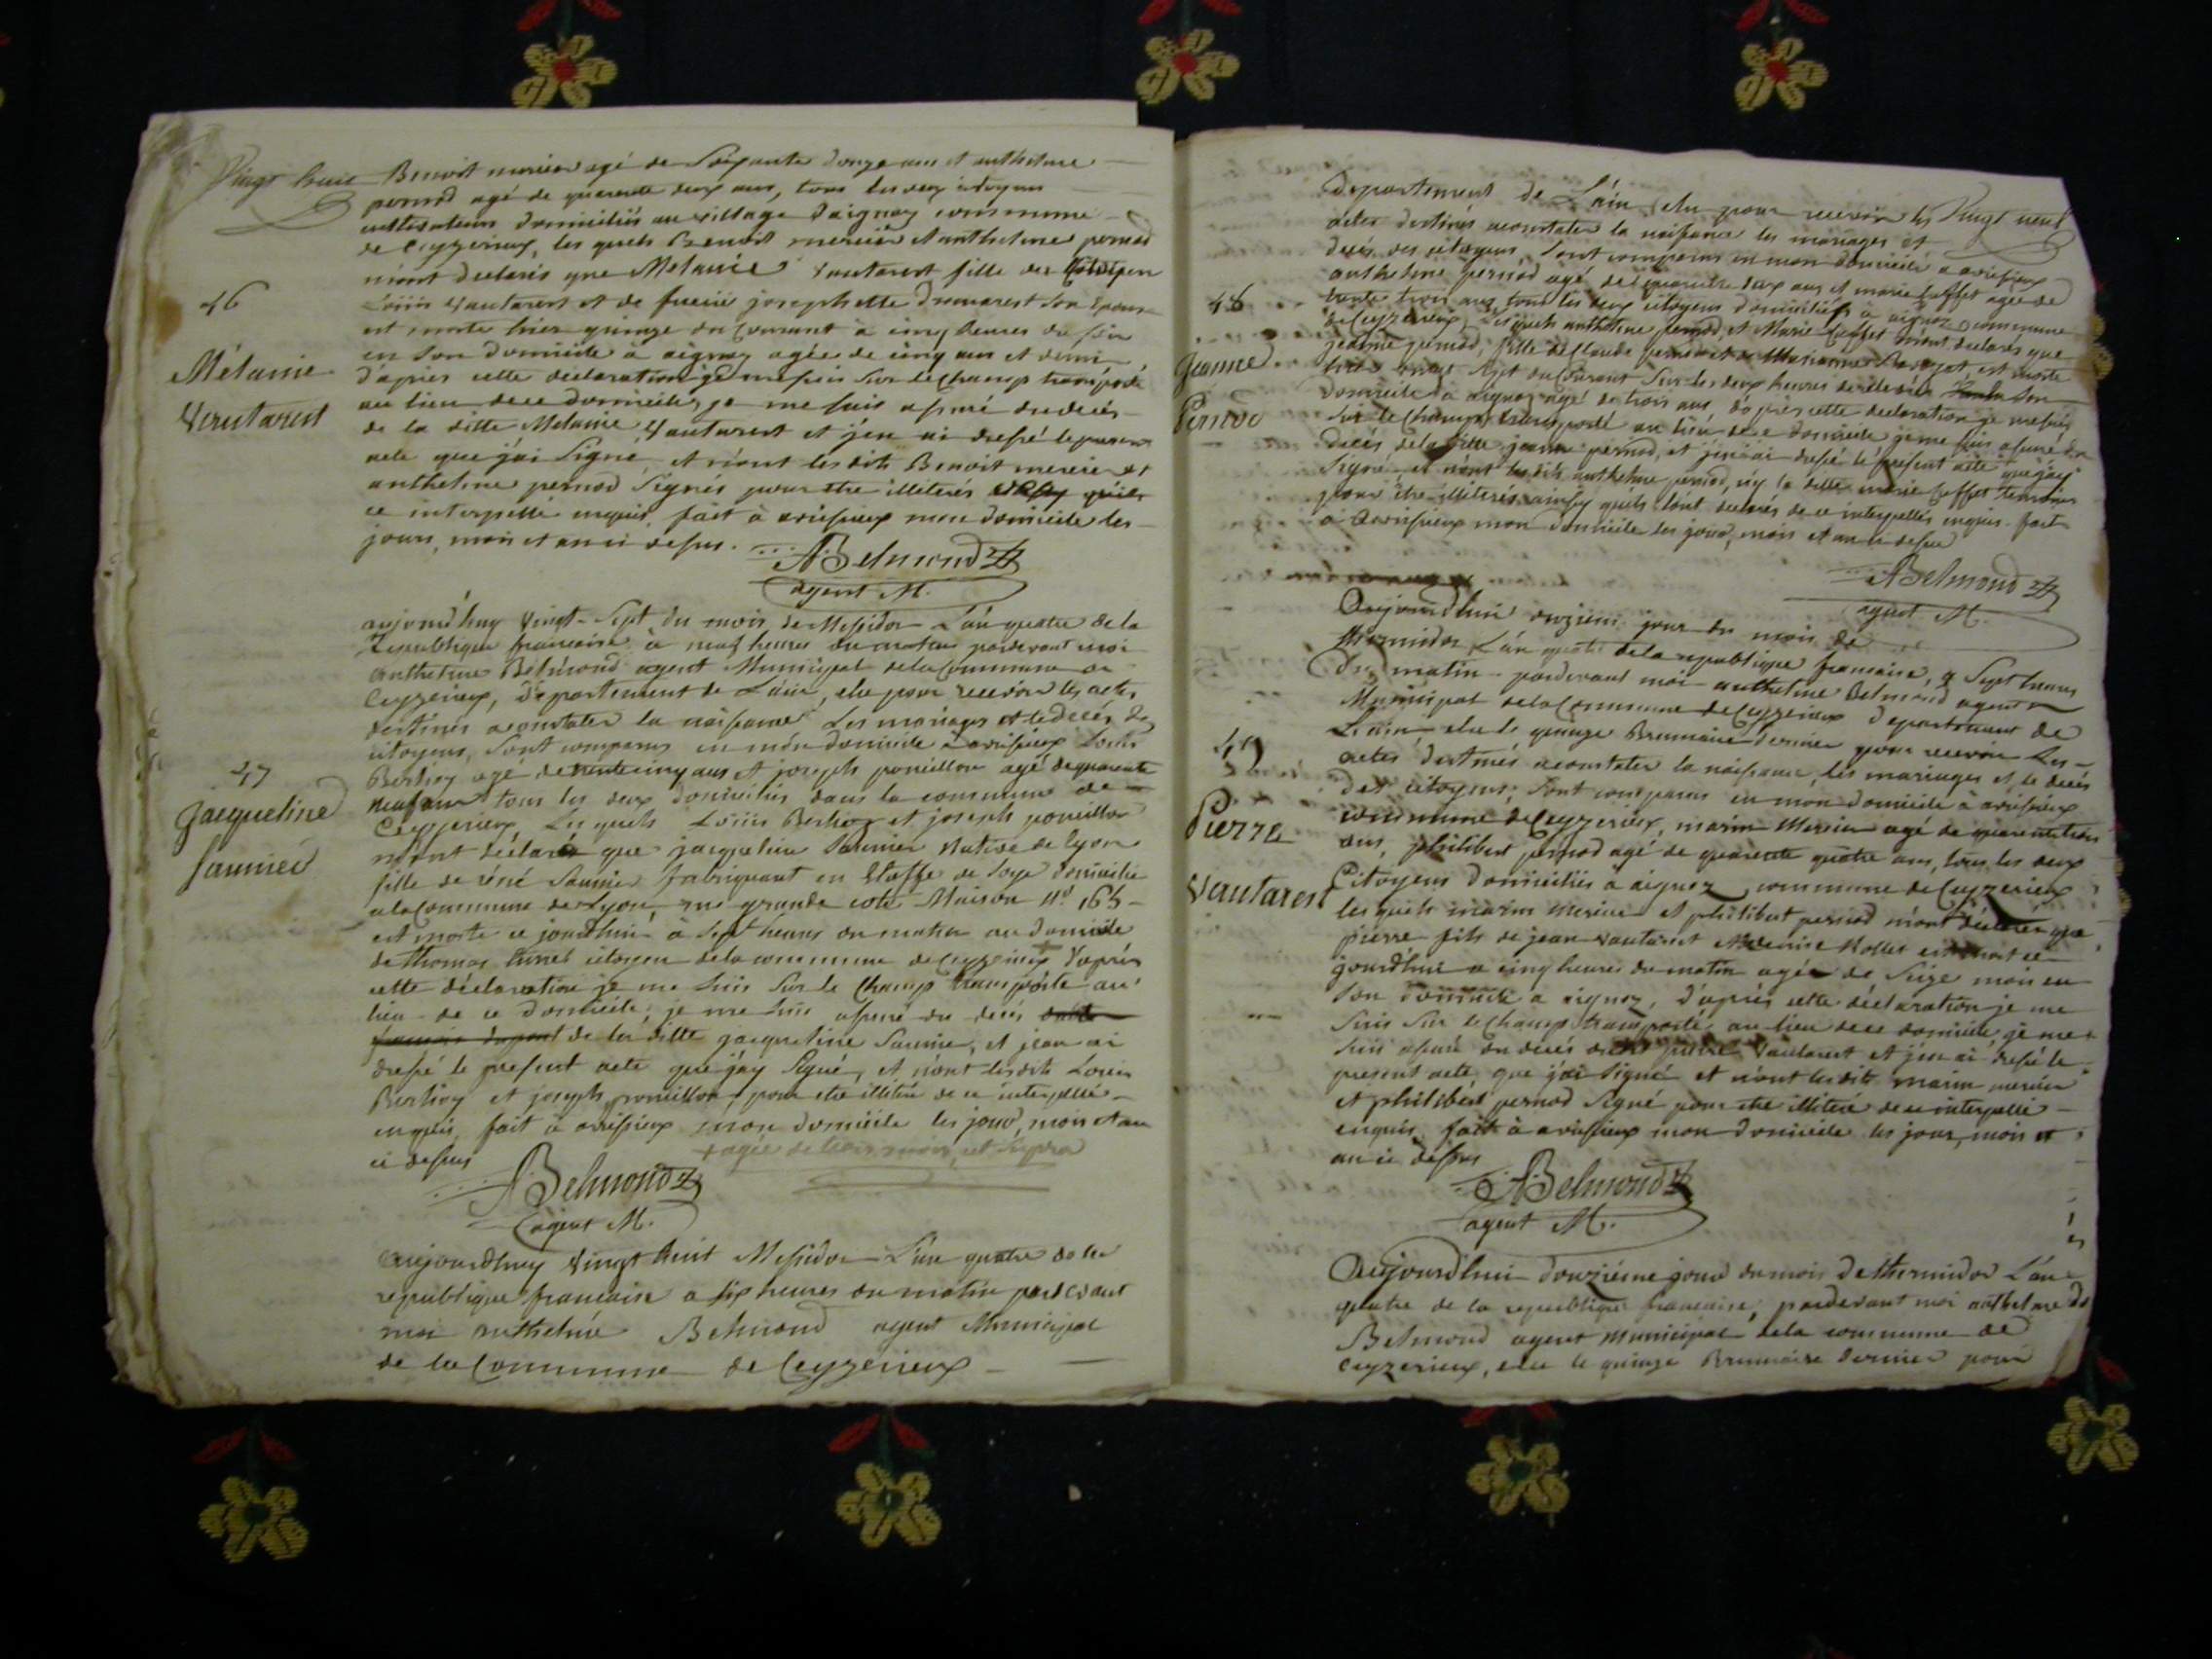 Vingt huit
Benoit mercier agé de Soixante douze ans et anthelme
pernod agé de quarente deux ans, tous les deux citoyens
cultivateurs domiciliés au village daignoz commune
de Ceyzerieux, les quels Benoit mercier et anthelme pernod
m'ont declarés que Melanie Vautarest fille des Citoyen
Loüis Vautarest et de feuiie josephette Dumarest Son Epouse
est morte hier quinze du Courant à cinq heures du soir
en Son Domicile à aignoz agée de cinq ans et demi
D'après cette declaration je me suis Sur le Champ transporté
au lieu de ce domicile, je me suis assuré du decés
de la ditte Melanie Vautarest et j'en ai dressé le present
acte que j'ai Signé, et n'ont les dits Benoit mercier et
anthelme pernod Signés pour etre illiterés qu'ils
ce interpellé enquis, fait à avrissieux mon domicile les
jours, mois et an ci dessus.
ABelmond
agent M.
46
Mélanie
Vautarest
aujourd'huy Vingt-Sept du mois de Messidor L'an quatre de la
Republique francaise à neuf heures du matin pardevant moi
anthelme Belmond agent Municipal de la Commune de
Ceyzerieux, Departement de L'ain, elu pour recevoir les actes
destinés a constater la naissance, Les mariages et le decés des
citoyens, Sont comparus en mon domicile à avrissieux Louis
Berthoz agé de trente cinq ans et joseph poncillon agé de quarente
neuf ans tous les deux domiciliés dans la commune de
Ceyzerieux Les quels Loüis Berthoz et joseph poncillon
m'ont déclaré que jacqueline Saunier Native de Lyon
fille de réné Saunier fabriquant en Etoffe de Soye domicilié
a la Commune de Lyon, rue grande cote Maison N° 165
est morte ce jourdhui à Sept heures du matin au domicile
de thomas citoyen de la commune de Ceyzerieux + D'après
cette déclaration je me suis Sur le Champ transporté au
lieu de ce domicile; je me suis assuré du decés
de la ditte jacqueline Saunier, et j'en ai
dressé le present acte que j'ay Signé, et n'ont les dits Louis
Berthoz et joseph poncillon, pour etre illitéré de ce interpellé
enquis, fait à avrissieux mon domicile les jour, mois et an
ci dessus
+ agée de trois mois, ut Supra
ABelmond
agent M.
47
Jacqueline
Saunier
aujourdhuy Vingt huit Messidor L'an quatre de la
republique francaise a six heures du matin pardevant
moi anthelme Belmond agent Municipal
de la Commune de Ceyzerieux
Vingt neuf
Departement de L'ain, elu pour recevoir les
actes destinés a constater la naissance les mariages et
decés des citoyens, Sont comparus en mon domicile a avrissieux
anthelme pernod agé de quarente deux ans et marie Cuffet agée de
trente trois ans tous les deux citoyens domiciliés à aignoz commune
de Ceyzerieux, Les quels anthelme pernod, et Marie Cuffet m'ont declarés que
jeanne pernod, fille de Claude pernod et de Marianne est morte
hier vingt Sept du Courant Sur les deux heures de relevée Son
domicile à aignoz agé de trois ans, d'après cette declaration je me suis
Sur le Champ transporté au lieu de ce domicile je me suis assuré du
decés de la ditte jeanne pernod, et j'en ai dressé le present acte que j'ay
Signé et n'ont les dits anthelme pernod, n'y la ditte marie Cuffet temoins
pour être illiterés ainsy qu'ils l'ont declarés de ce interpellés enquis. fait
à avrissieux mon domicile les jour, mois et an ci dessus
ABelmond
agent M.
48
Jeanne
Pernod
Aujourdhui onzième jour du mois de
thermidor, L'an quatre de la republique francaise, a Sept heures
du matin pardevant moi anthelme Belmond agent
Municipal de la Commune de Ceyzerieux Departement de
L'ain, elu le quinze Brumaire dernier pour recevoir Les
actes destinés a constater la naissance, les mariages et le decés
des citoyens; Sont comparus en mon domicile à avrissieux
commune de Ceyzerieux, marin Mercier agé de quarente trois
ans, philibert pernod agé de quarente quatre ans, tous les deux
Citoyens domiciliés à aignoz commune de Ceyzerieux
les quels marin Mercier et philibert pernod m'ont déclarés que
pierre fils de jean Vautarest et denise Rollet est mort ce
jourdhui a cinq heures du matin agée de Seize mois en
Son domicile a aignoz, d'après cette déclaration je me
suis Sur le Champ transporté au lieu de ce domicile, je me
suis assuré du decés dudit pierre Vautarest et j'en ai dressé le
present acte que j'ai Signé et n'ont les dits marin mercier
et philibert pernod Signé pour etre illiteré de ce interpellé
enquis, fait à avrissieux mon domicile les jour, mois et
an ci dessus
ABelmond
agent M.
49
Pierre
Vautarest
Aujourdhui douzième jour du mois de thermidor L'an
quatre de la republique francaise, pardevant moi anthelme
Belmond agent municipal de la commune de
Ceyzerieux, elu le quinze Brumaire dernier pour